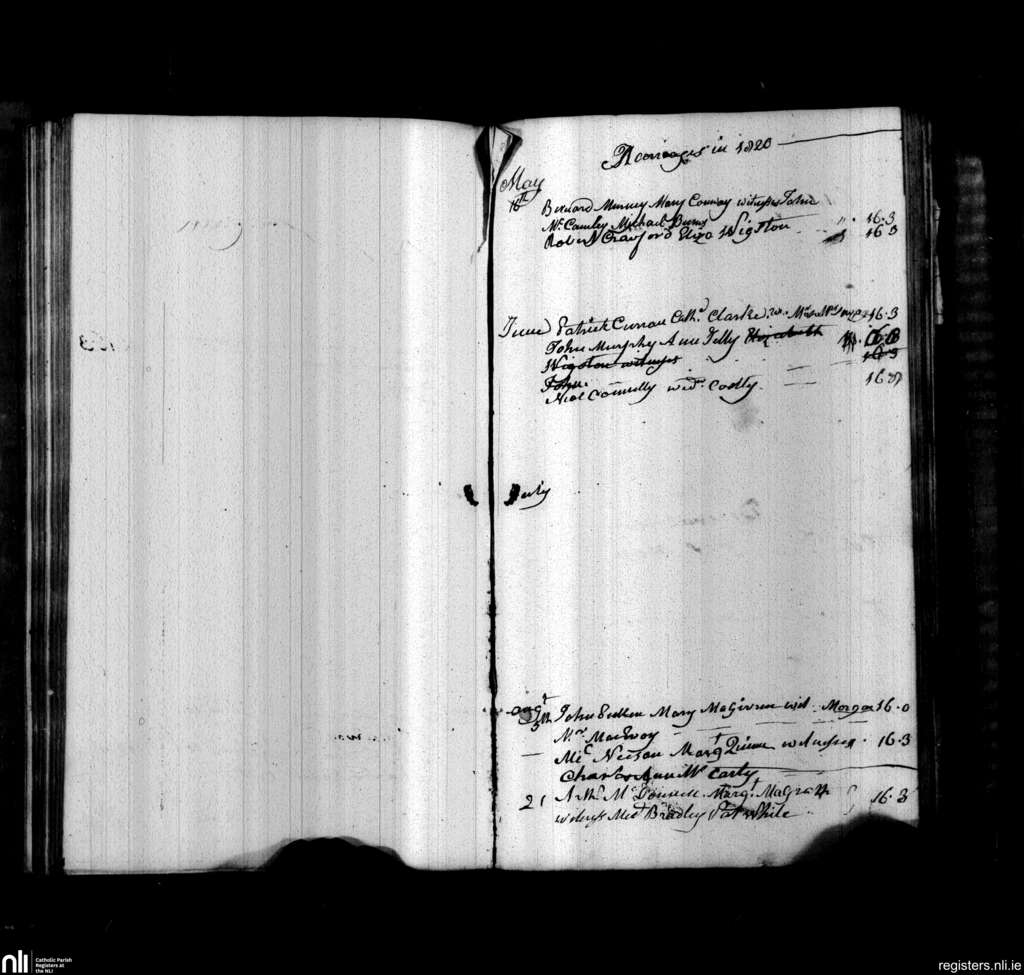 Marriages in 1820
May
16th Bernard Murvey Mary Conway witnesses John
McCamley Michael Burns 16.3
Robert Crawford Eliza Wigston 16 3
June Patrick Curran Cath. Clarke 16.3
John Murphy Anne Jelly Elizabeth
Wigston witness 16 3
John
Neal Connelly wid. Costly 16
July
Augt
5th John Cullen Mary MaGivren wit. Morgan 16.0
Mrs MacEvoy
Mic Neeson Margt Quinn witnesses 16.3
Charles Ann McCarty
21 Arth. McDonnell Margt MaGrath 16.3
witness Bradley Pat White
nli
Catholic Parish
Registers at
the NLI
registers.nli.ie